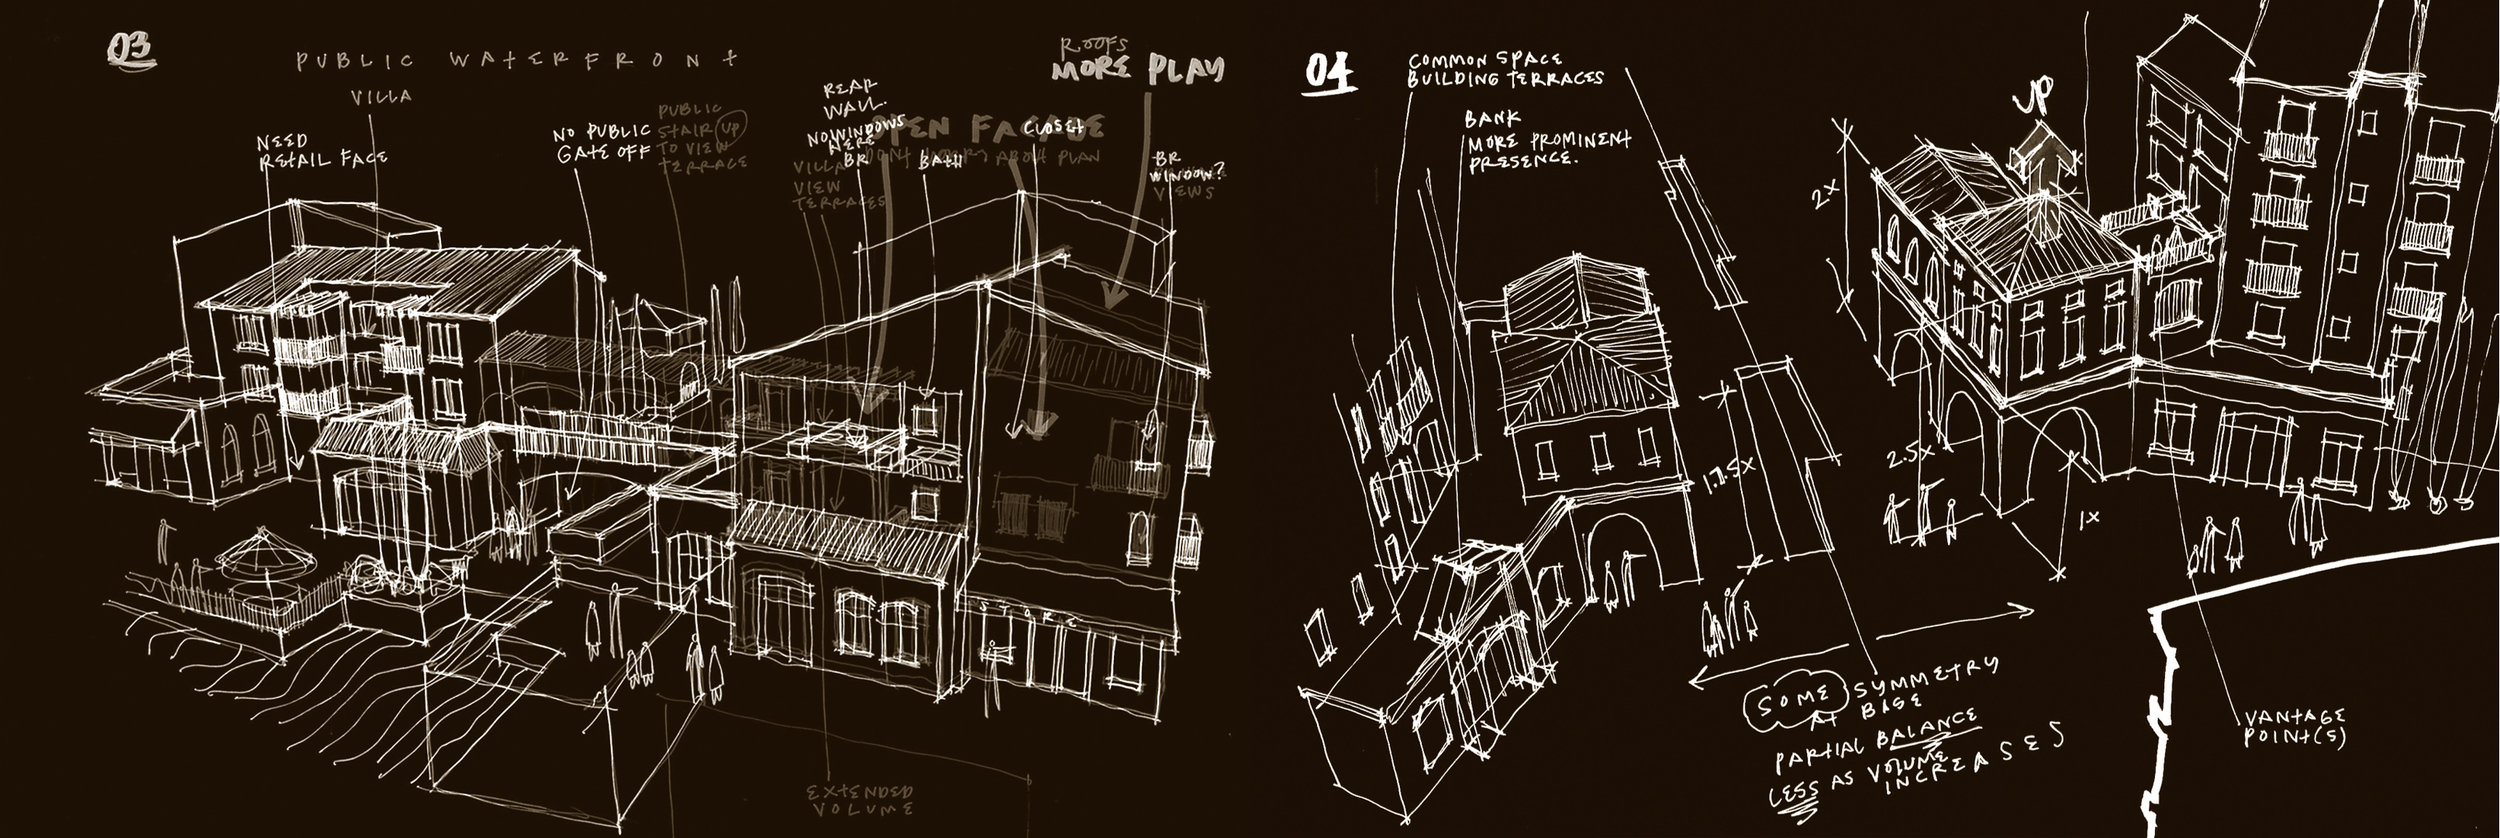 03
PUBLIC WATERFRONT
VILLA
NEED
RETAIL FACE
NO PUBLIC
GATE OFF
PUBLIC
STAIR UP
TO VIEW
TERRACE
REAR
WALL.
NO WINDOWS
HERE
BR
VILLA
VIEW
TERRACES
OPEN FACADE
DON'T WORRY ABOUT PLAN
BATH
CLOSET
ROOFS
MORE PLAY
BR
WINDOW?
VIEWS
STORE
EXTENDED
VOLUME
04
COMMON SPACE
BUILDING TERRACES
BANK
MORE PROMINENT
PRESENCE.
UP
2X
2.5X
1X
1.75X
SOME SYMMETRY
AT BASE
PARTIAL BALANCE
LESS AS VOLUME
INCREASES
VANTAGE
POINT(S)